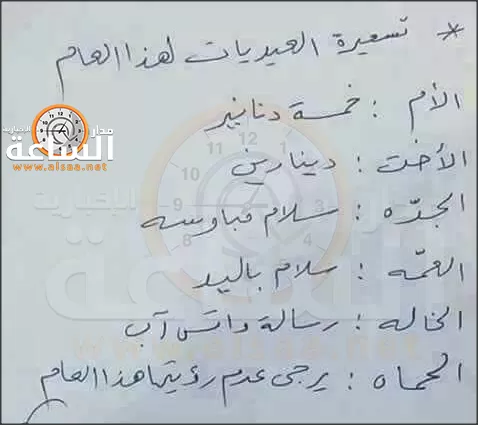 * تسعيرة العيديات لهذا العام
الأم : خمسة دنانير
الأخت : دينارين
الجدّه : سلام مباوسه
العمّه : سلام باليد
الخاله : رسالة واتس آب
الحماه : يرجى عدم رؤيتها هذا العام
مدار
الساعة
الإخبارية
www.alsaa.net